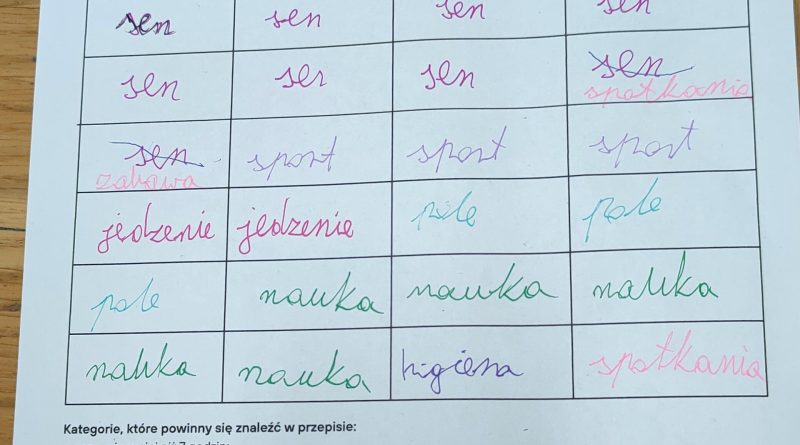 sen sen sen sen
sen sen sen sen
spotkania
sen sport sport sport
zabawa
jedzenie jedzenie pole pole
pole nauka nauka nauka
nauka nauka higiena spotkania
Kategorie, które powinny się znaleźć w przepisie: